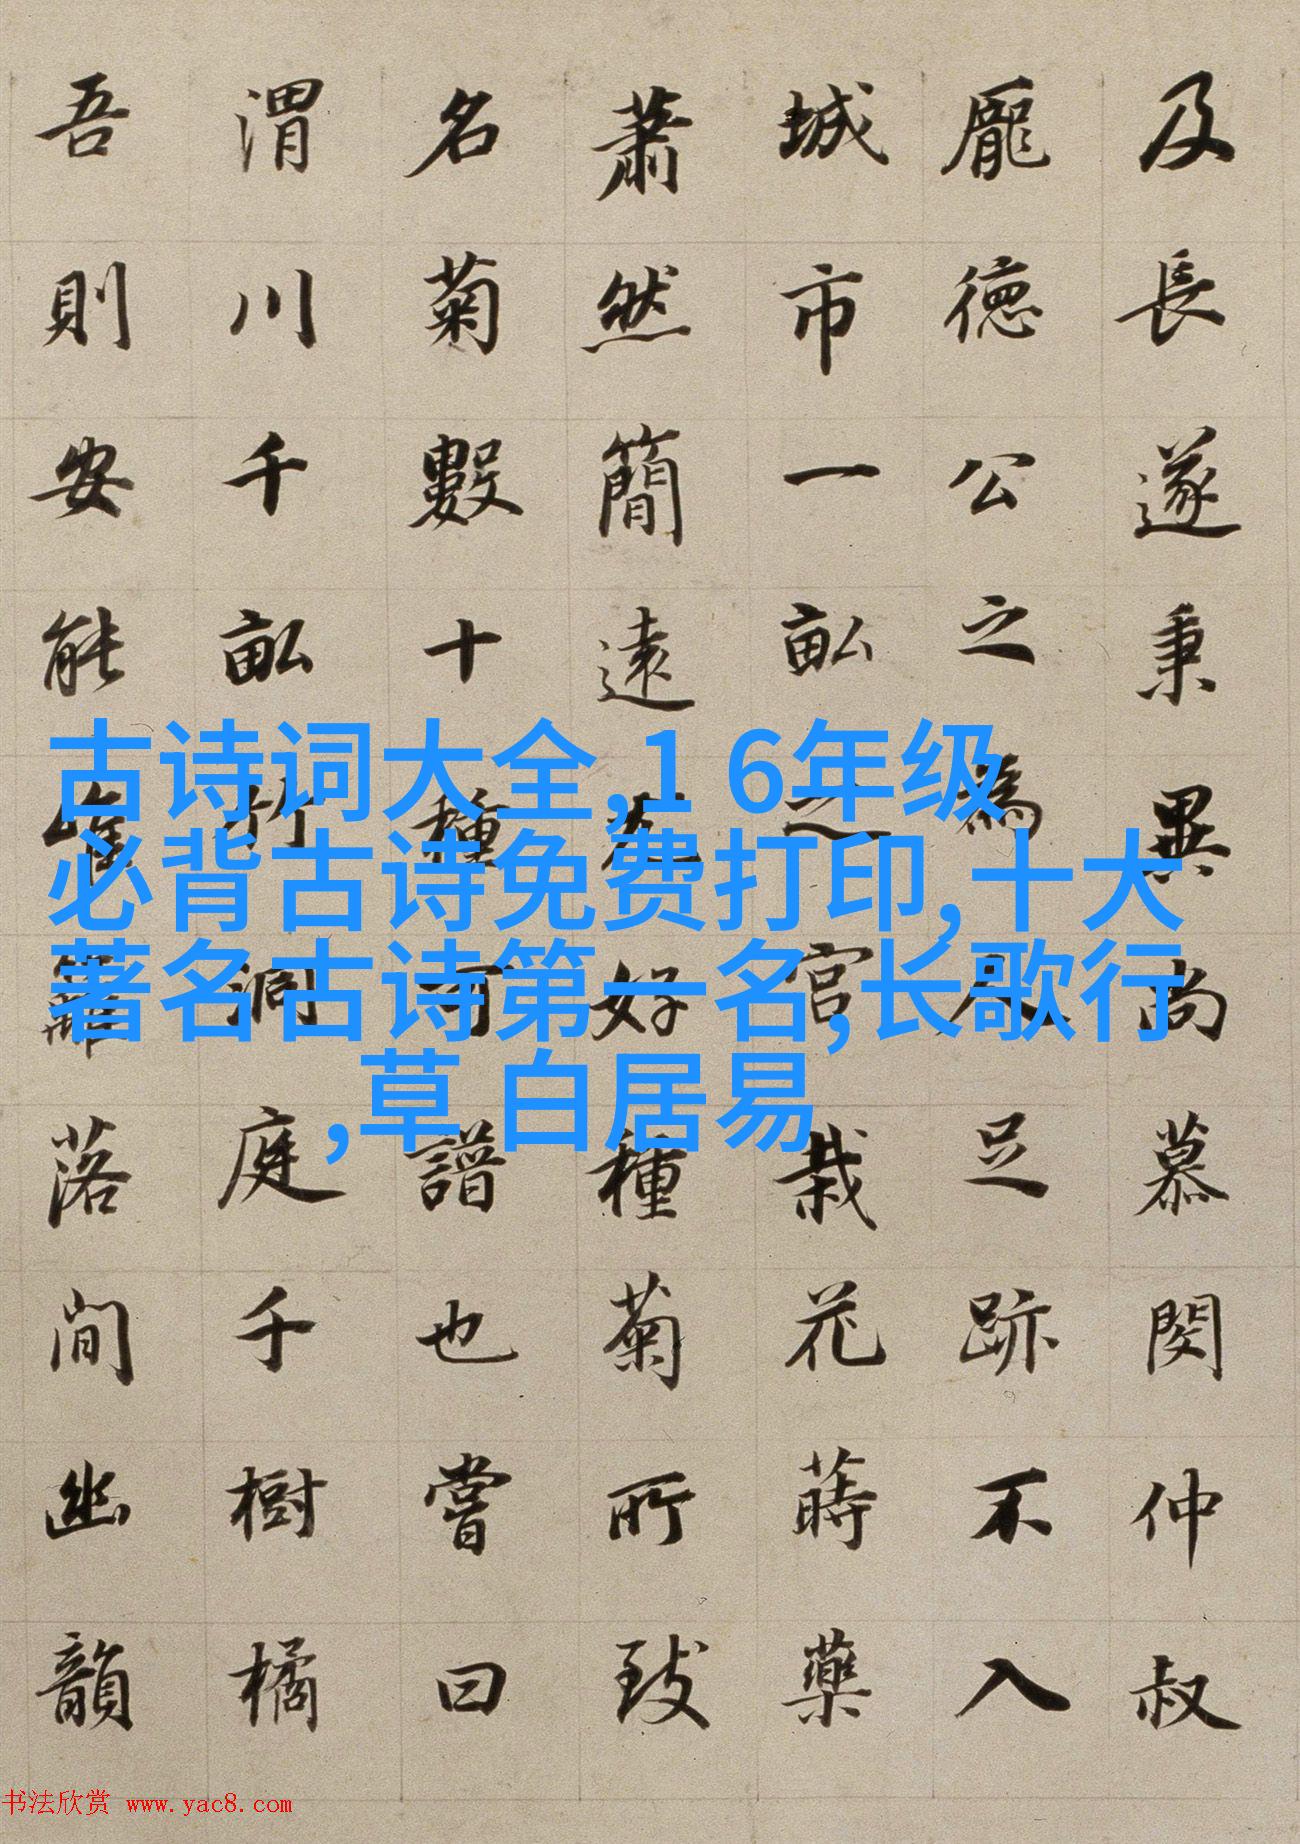 及長遂秉異尚慕閔仲叔
龐徳公之為人足跡不入
城市一畝之宮栽花蒔藥
蕭然簡遠尤好種菊所致
名菊數十種可譜也嘗曰
渭川千畝竹洞庭千樹橘
吾則安能唯籬落間幽韻
古诗词大全,1 6年级
必背古诗免费打印,十大
著名古诗第一名,长歌行
,草 白居易
书法欣赏 www.yac8.com